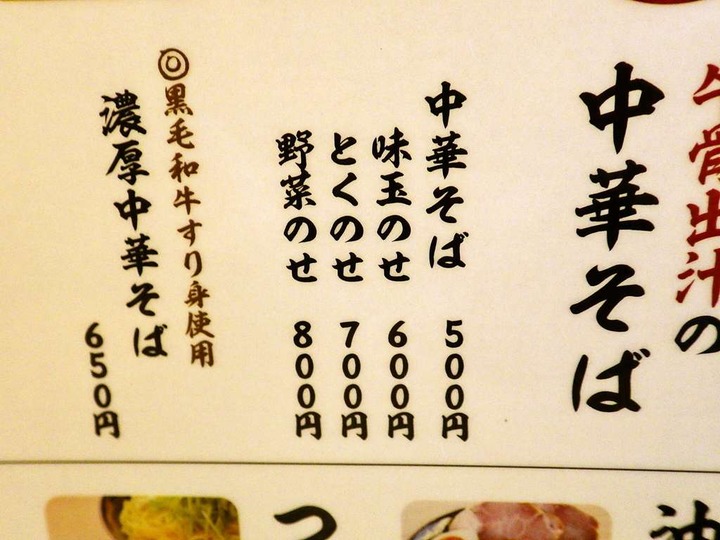 牛骨出汁の
中華そば
中華そば 500円
味玉のせ 600円
とくのせ 700円
野菜のせ 800円
◎黒毛和牛すり身使用
濃厚中華そば 650円
つ